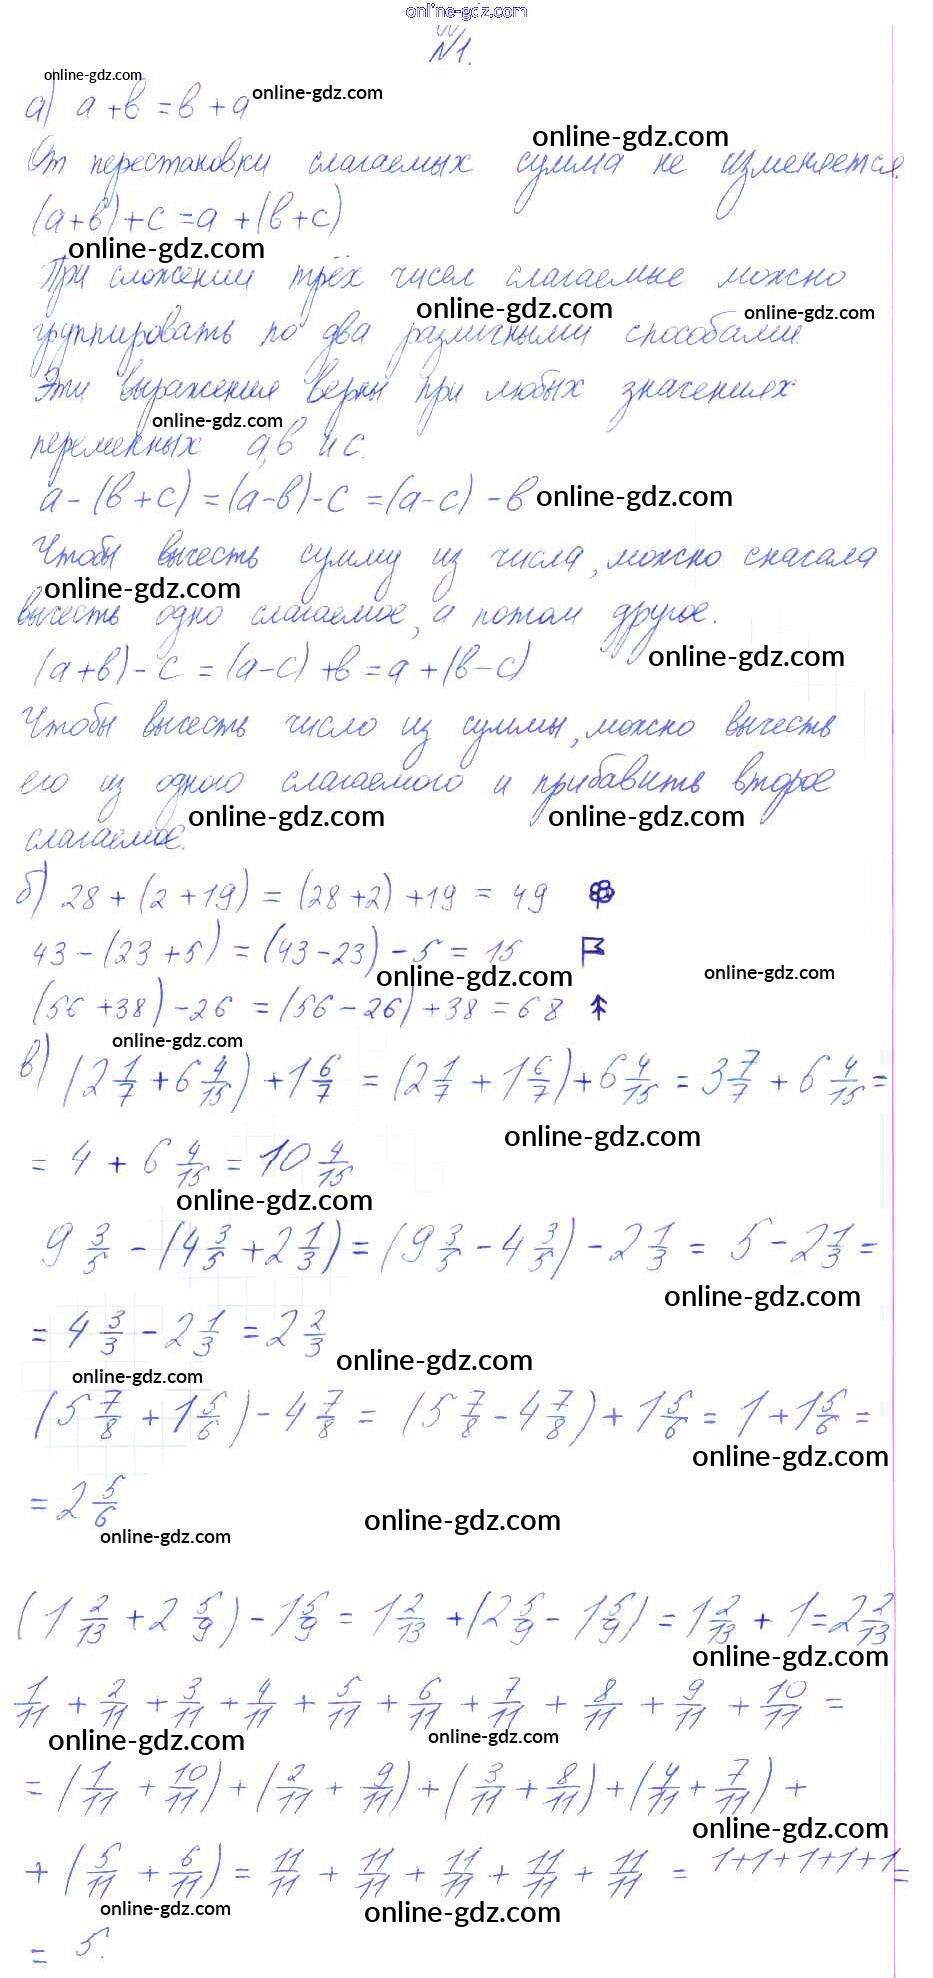 online-gdz.com
N1.
online-gdz.com
а) а + в = в + а online-gdz.com
online-gdz.com
От перестановки слагаемых сумма не изменяется.
(а+в)+с = а + (в+с)
online-gdz.com
При сложении трёх чисел слагаемые можно
online-gdz.com online-gdz.com
группировать по два различными способами.
Эти выражения верны при любых значениях
online-gdz.com
переменных а, в и с.
а - (в + с) = (а-в) - с = (а-с) - в online-gdz.com
Чтобы вычесть сумму из числа, можно сначала
online-gdz.com
вычесть одно слагаемое, а потом другое.
(а+в) - с = (а-с) + в = а + (в-с) online-gdz.com
Чтобы вычесть число из суммы, можно вычесть
его из одного слагаемого и прибавить второе
online-gdz.com online-gdz.com
слагаемое.
б) 28 + (2 + 19) = (28 + 2) + 19 = 49
43 - (23 + 5) = (43 - 23) - 5 = 15
online-gdz.com online-gdz.com
(56 + 38) - 26 = (56 - 26) + 38 = 68
online-gdz.com
в) (2 1/7 + 6 4/15) + 1 6/7 = (2 1/7 + 1 6/7) + 6 4/15 = 3 7/7 + 6 4/15 =
online-gdz.com
= 4 + 6 4/15 = 10 4/15
online-gdz.com
9 3/5 - (4 3/5 + 2 1/3) = (9 3/5 - 4 3/5) - 2 1/3 = 5 - 2 1/3 =
online-gdz.com
= 4 3/3 - 2 1/3 = 2 2/3
online-gdz.com
online-gdz.com
(5 7/8 + 1 5/6) - 4 7/8 = (5 7/8 - 4 7/8) + 1 5/6 = 1 + 1 5/6 =
online-gdz.com
= 2 5/6
online-gdz.com
online-gdz.com
(1 2/13 + 2 5/9) - 1 5/9 = 1 2/13 + (2 5/9 - 1 5/9) = 1 2/13 + 1 = 2 2/13
online-gdz.com
1/11 + 2/11 + 3/11 + 4/11 + 5/11 + 6/11 + 7/11 + 8/11 + 9/11 + 10/11 =
online-gdz.com online-gdz.com
= (1/11 + 10/11) + (2/11 + 9/11) + (3/11 + 8/11) + (4/11 + 7/11) +
online-gdz.com
+ (5/11 + 6/11) = 11/11 + 11/11 + 11/11 + 11/11 + 11/11 = 1+1+1+1+1 =
online-gdz.com online-gdz.com
= 5.